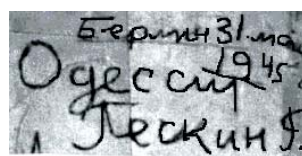 Берлин 31 ма
1945
Одессит
Пескин Я.